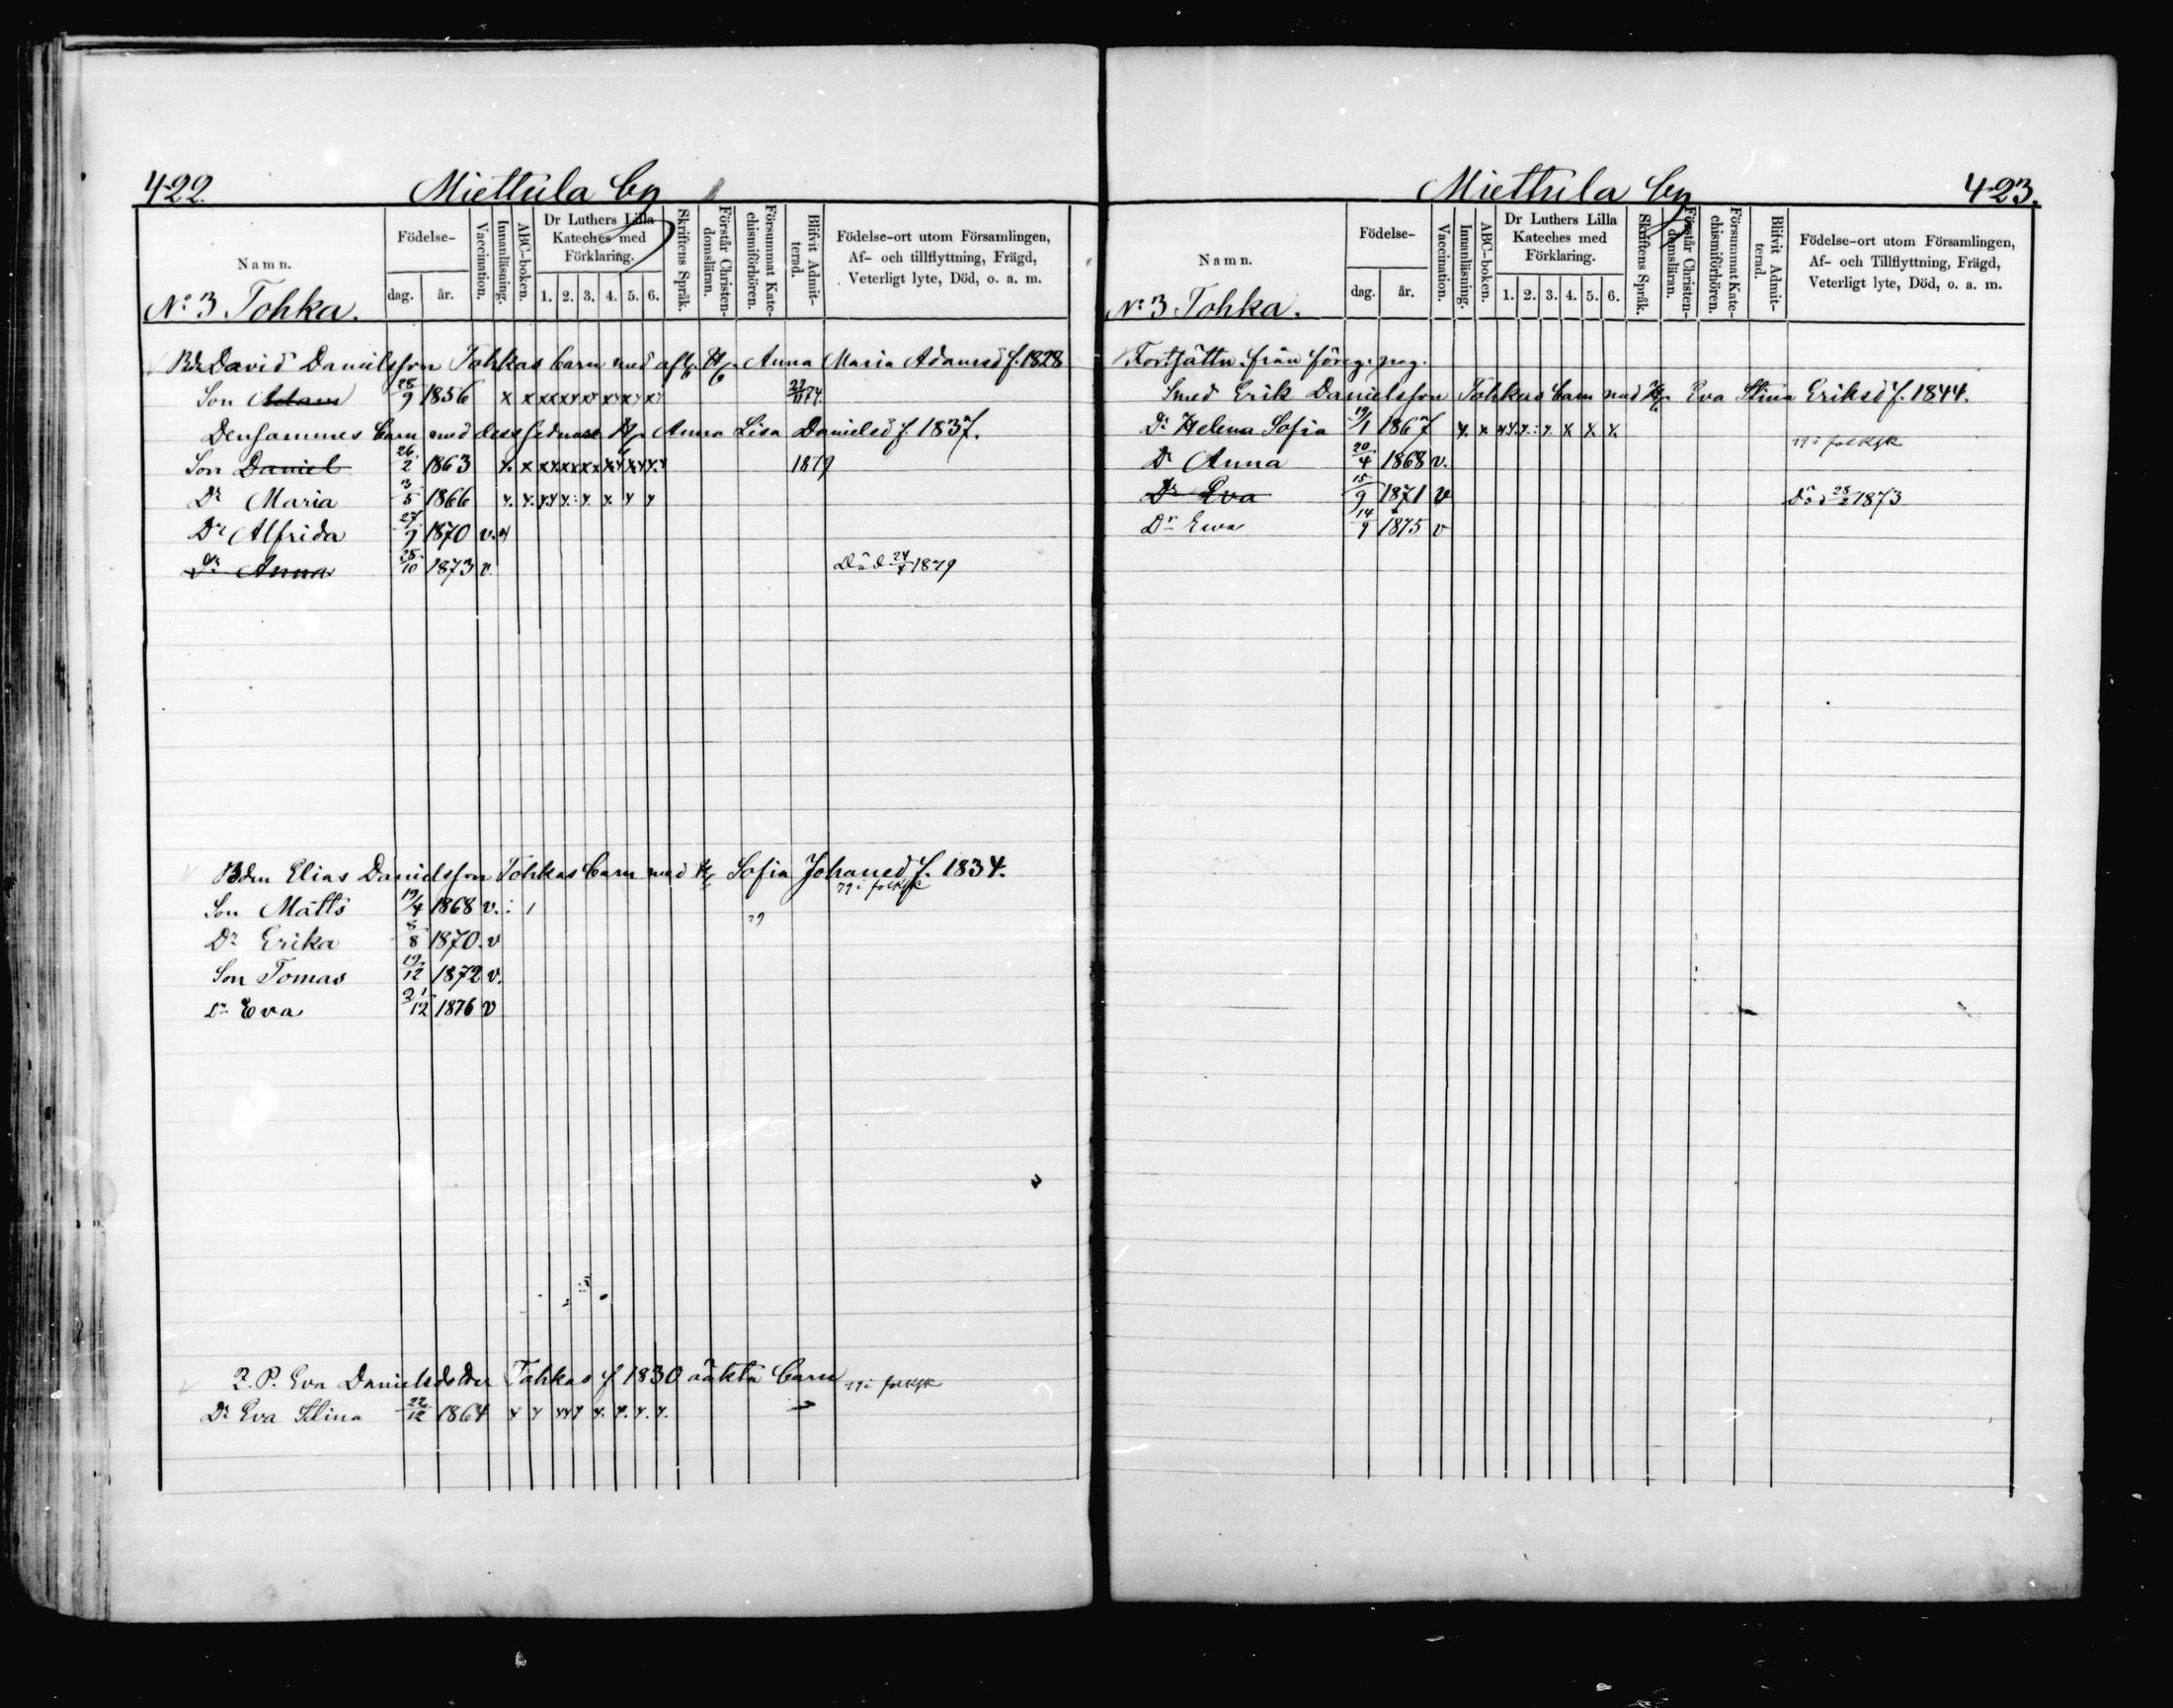 422.
Miettula by
Namn.
Födelse-
dag. år.
Vaccination.
Innanläsning.
ABC-boken.
Dr Luthers Lilla Kateches med Förklaring.
1. 2. 3. 4. 5. 6.
Skriftens Språk.
Förstår Christen-domsläran.
Försummat Kate-chismiförhören.
Blifvit Admit-terad.
Födelse-ort utom Församlingen,
Af- och tillflyttning, Frägd,
Veterligt lyte, Död, o. a. m.
No 3 Tohka.
Bdn David Danielsson Tohkas barn med afl. H. Anna Maria Adamsd f. 1828
Son Adam 28/9 1856 x x xxxx x x x x 22/11 74.
Densammes barn med dess sednare H. Anna Lisa Danielsd f. 1837.
Son Daniel 26/2 1863 x x xxxxxx x x x x 1879
Dr Maria 3/5 1866 x x x x x x x x x
Dr Alfrida 27/9 1870 v.
Dr Anna 28/10 1873 v. Död 24/7 1879
Bdn Elias Danielsson Tohkas barn med H. Sofia Johansd f. 1834.
79 i folksk
Son Matts 19/4 1868 v. : / 79
Dr Erika 8/8 1870. v
Son Tomas 19/12 1872 v.
Dr Eva 21/12 1876 v
Q. P. Eva Danielsdoter Tohkas f 1830 oäkta barn
79 i folksk
Dr Eva Stina 22/12 1864 x x xxx x. x. x. x.
Miettula by
423.
Namn.
Födelse-
dag. år.
Vaccination.
Innanläsning.
ABC-boken.
Dr Luthers Lilla Kateches med Förklaring.
1. 2. 3. 4. 5. 6.
Skriftens Språk.
Förstår Christen-domsläran.
Försummat Kate-chismiförhören.
Blifvit Admit-terad.
Födelse-ort utom Församlingen,
Af- och Tillflyttning, Frägd,
Veterligt lyte, Död, o. a. m.
No 3 Tohka.
Fortsättn. från föreg. pag.
Smed Erik Danielsson Tohkas barn med H. Eva Stina Eriksd f. 1844.
Dr Helena Sofia 19/1 1867 x. x x x x. : x. x x x.
79 i folksk
Dr Anna 20/4 1868 v.
Dr Eva 15/9 1871 v Död 28/2 1873
Dr Ewa 14/9 1875 v